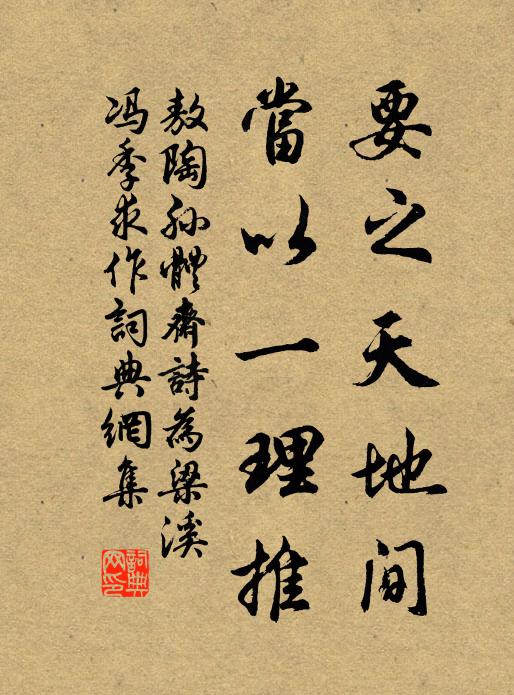 要之天地間
當以一理推
敖陶孙體齋詩為梁溪
冯季求作詞典網集
詞典网印